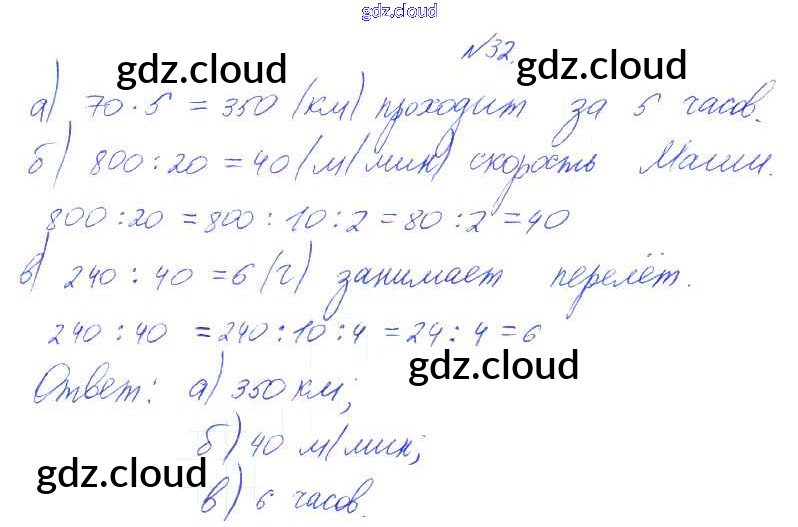 gdz.cloud
№32.
gdz.cloud gdz.cloud
а) 70 · 5 = 350 (км) проходит за 5 часов.
б) 800 : 20 = 40 (м/мин) скорость Маши.
800 : 20 = 800 : 10 : 2 = 80 : 2 = 40
в) 240 : 40 = 6 (г) занимает перелёт.
240 : 40 = 240 : 10 : 4 = 24 : 4 = 6
gdz.cloud
Ответ: а) 350 км;
б) 40 м/мин;
gdz.cloud
в) 6 часов.